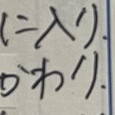 に入り.
わり.